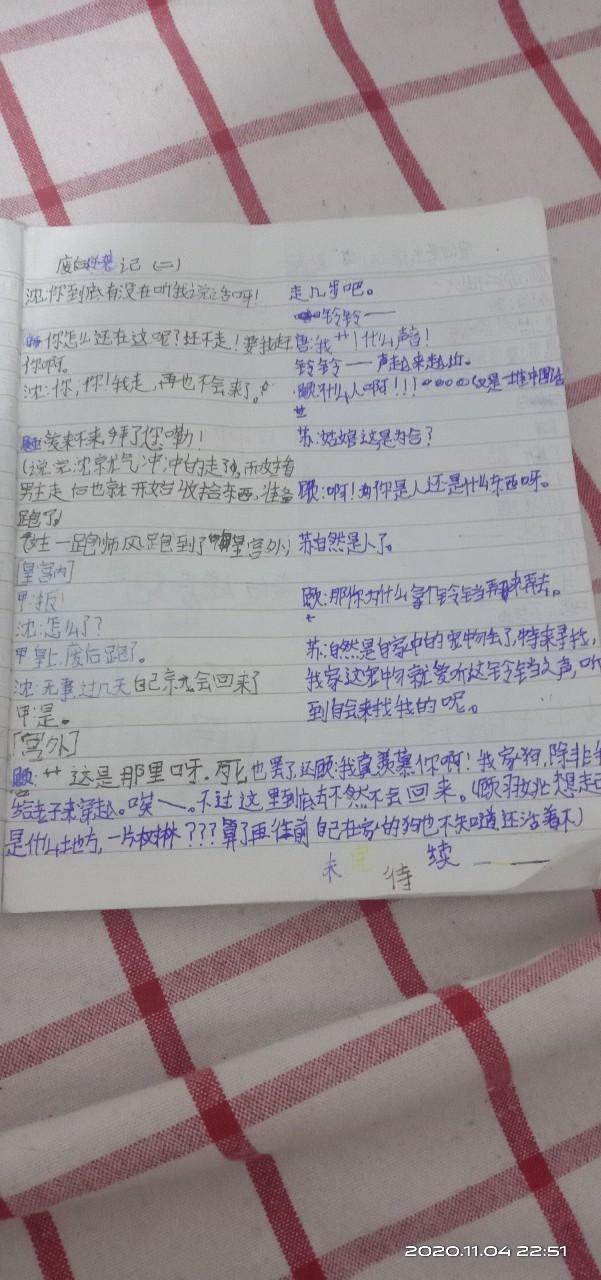 废后 记(二)
沈:你到底有没在听我说话呀!
你怎么还在这呢?还不走!要我赶
你啊。
沈:你,你!我走,再也不会来了。
爱来不来,拜了您嘞!
(说完沈就气冲冲的走了,而女主看
男主走后也就开始收拾东西,准备
跑了)
(女主一路 跑到了皇宫外)
[皇宫内]
甲:报!
沈:怎么了?
甲:皇上,废后跑了。
沈:无事过几天自己就会回来了
甲:是。
[宫外]
顾:艹这是那里呀。死也罢了还
给老子来穿越。唉——。不过这里到底
是什么地方,一片树林???算了再往前
走几步吧。
铃铃——
我艹!什么声音!
铃铃——声越来越近。
顾:什么人啊!!!
苏:姑娘这是为何?
顾:啊! 你是人还是什么东西呀。
苏:自然是人了。
顾:那你为什么拿个铃铛 来再去。
苏:自然是自家中的宠物丢了,特来寻找,
我家这宠物就爱听这铃铛之声,听
到自会来找我的呢。
顾:我真羡慕你啊!我家狗,除非
不然不会回来。(顾 想起
自己在家的狗也不知道还活着不)
未完待续——
2020.11.04 22:51